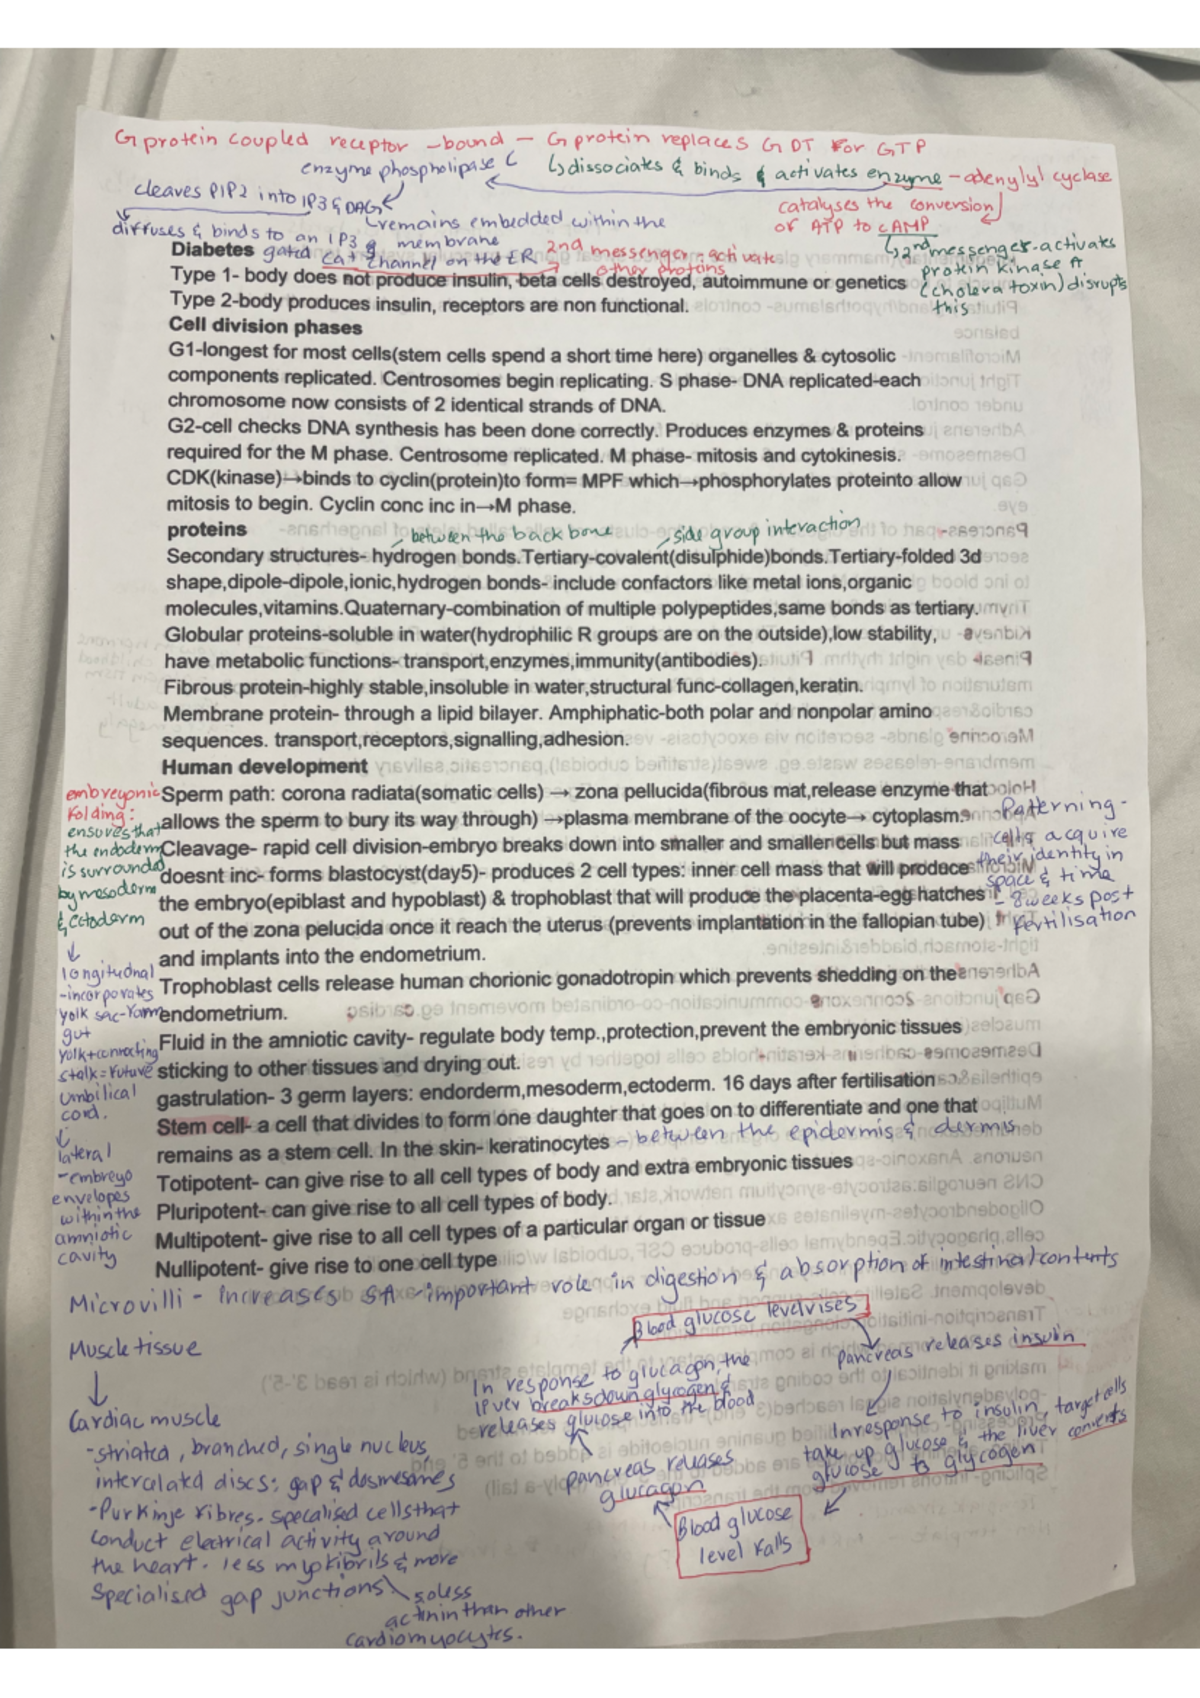 G protein coupled receptor - bound - G protein replaces GDT for GTP
enzyme phospholipase C
↳ dissociates & binds & activates enzyme - adenylyl cyclase
cleaves PIP2 into IP3 & DAG
catalyses the conversion
of ATP to cAMP
↳ remains embedded within the
membrane
diffuses & binds to an IP3
gated Ca+ channel on the ER
2nd messenger - activate
other proteins
↳ 2nd messenger - activates
protein kinase A
(cholera toxin) disrupts
this
Diabetes
Type 1- body does not produce insulin, beta cells destroyed, autoimmune or genetics
Type 2-body produces insulin, receptors are non functional.
Cell division phases
G1-longest for most cells(stem cells spend a short time here) organelles & cytosolic
components replicated. Centrosomes begin replicating. S phase- DNA replicated-each
chromosome now consists of 2 identical strands of DNA.
G2-cell checks DNA synthesis has been done correctly. Produces enzymes & proteins
required for the M phase. Centrosome replicated. M phase- mitosis and cytokinesis.
CDK(kinase)→binds to cyclin(protein)to form= MPF which→phosphorylates proteinto allow
mitosis to begin. Cyclin conc inc in→M phase.
proteins
between the back bone
side group interaction
Secondary structures- hydrogen bonds.Tertiary-covalent(disulphide)bonds.Tertiary-folded 3d
shape,dipole-dipole,ionic,hydrogen bonds- include confactors like metal ions,organic
molecules,vitamins.Quaternary-combination of multiple polypeptides,same bonds as tertiary.
Globular proteins-soluble in water(hydrophilic R groups are on the outside),low stability,
have metabolic functions- transport,enzymes,immunity(antibodies).
Fibrous protein-highly stable,insoluble in water,structural func-collagen,keratin.
Membrane protein- through a lipid bilayer. Amphiphatic-both polar and nonpolar amino
sequences. transport,receptors,signalling,adhesion.
Human development
Sperm path: corona radiata(somatic cells) → zona pellucida(fibrous mat,release enzyme that
allows the sperm to bury its way through) →plasma membrane of the oocyte→ cytoplasm.
Cleavage- rapid cell division-embryo breaks down into smaller and smaller cells but mass
doesnt inc- forms blastocyst(day5)- produces 2 cell types: inner cell mass that will produce
the embryo(epiblast and hypoblast) & trophoblast that will produce the placenta-egg hatches
out of the zona pelucida once it reach the uterus (prevents implantation in the fallopian tube)
and implants into the endometrium.
Trophoblast cells release human chorionic gonadotropin which prevents shedding on the
endometrium.
Fluid in the amniotic cavity- regulate body temp.,protection,prevent the embryonic tissues
sticking to other tissues and drying out.
gastrulation- 3 germ layers: endorderm,mesoderm,ectoderm. 16 days after fertilisation
Stem cell- a cell that divides to form one daughter that goes on to differentiate and one that
remains as a stem cell. In the skin- keratinocytes - between the epidermis & dermis
Totipotent- can give rise to all cell types of body and extra embryonic tissues
Pluripotent- can give rise to all cell types of body.
Multipotent- give rise to all cell types of a particular organ or tissue
Nullipotent- give rise to one cell type
embreyonic
folding:
ensures that
the endoderm
is surrounded
by mesoderm
& Ectoderm
↓
longitudnal
-incorporates
yolk sac-form
gut
yolk+connecting
stalk = future
umbilical
cord.
↓
lateral
-embreyo
envelopes
within the
amniotic
cavity
Paterning -
cells acquire
their identity in
space & time
- 8 weeks post
fertilisation
Microvilli - increases SA - important role in digestion & absorption of intestinal contents
Muscle tissue
↓
Cardiac muscle
-striated, branched, single nucleus
intercalatd discs: gap & dosmesomes
-Purkinje fibres. specalised cells that
conduct electrical activity around
the heart. less myofibrils & more
Specialised gap junctions
so less
actinin than other
cardiomyocytes.
Blood glucose level rises
Pancreas releases insulin
In response to insulin, target cells
take up glucose & the liver converts
glucose to glycogen
Blood glucose
level falls
pancreas releases
glucagon
In response to glucagon, the
liver breaks down glycogen &
releases glucose into the blood